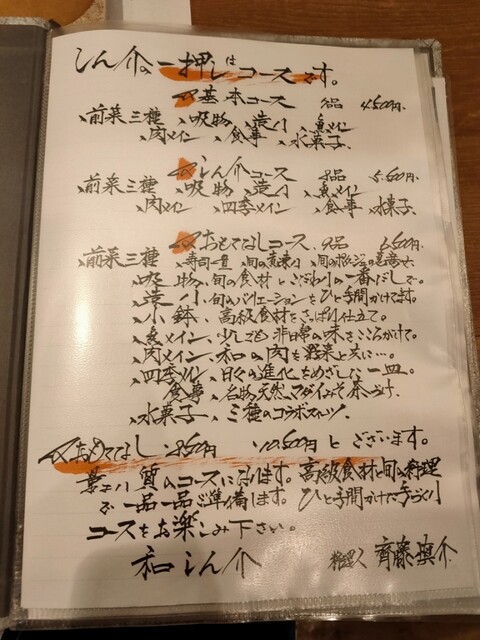 しん介の一押しはコースです。
基本コース 品 4,500円
前菜三種 吸物 造り 魚メイン
肉メイン 食事 水菓子
しん介コース 品 5,500円
前菜三種 吸物 造り 魚メイン
肉メイン 四季メイン 食事 水菓子
おもてなしコース 品 6,500円
前菜三種 寿司一貫 旬の 旬の
吸物、旬の食材とこだわりの一番だしで。
造り、旬のバリエーションをひと手間かけてます。
小鉢、高級食材をさっぱり仕立て。
魚メイン、少しでも非日常の味をこころがけて。
肉メイン、和の肉を野菜と共に…。
四季メイン、日々の進化をめざした一皿。
食事、名物天然マダイみそ茶づけ
水菓子、三種のコラボスイーツ
おもてなし 8,500円 10,500円とございます。
より質のコースになります。高級食材と旬の料理
で一品一品ご準備します。ひと手間かけた手づくり
コースをお楽しみ下さい。
和しん介 料理人 齊藤慎介